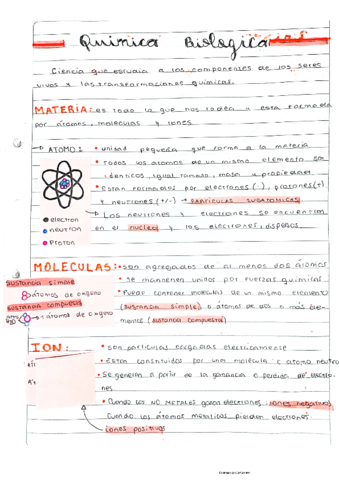 Quimica Biologica
Ciencia que estudia a los componentes de los seres
vivos y las transformaciones quimicas.
MATERIA: es todo lo que nos rodea y esta formada
por átomos, moleculas y iones.
→ ATOMO: • unidad pequeña que forma a la materia
• Todos los atomos de un mismo elemento son
identicos, igual tamaño, masa y propiedades
• Estan formados por electrones (-), protones (+)
y neutrones (+/-) → PARTICULAS SUBATOMICAS
electron
neutron
proton
Los neutrones y electrones se encuentran
en el nucleo y los electrones, dispersos.
MOLECULAS: • son agregados de al menos dos átomos
• Se mantienen unidos por fuerzas quimicas
• Puede contener moleculas de un mismo elemento
(sustancia simple) o átomos de dos o más ele-
mentos (sustancia compuesta)
sustancia simple
átomos de oxigeno
sustancia compuesta
átomo de oxigeno
ION: • son particulas cargadas electricamente
• Estan constituidos por una molecula o atomo neutro
• Se generan a partir de la ganancia o perdida de electro-
nes.
• Cuando los NO METALES ganan electrones, iones negativos
Cuando los átomos metalicos pierden electrones
iones positivos